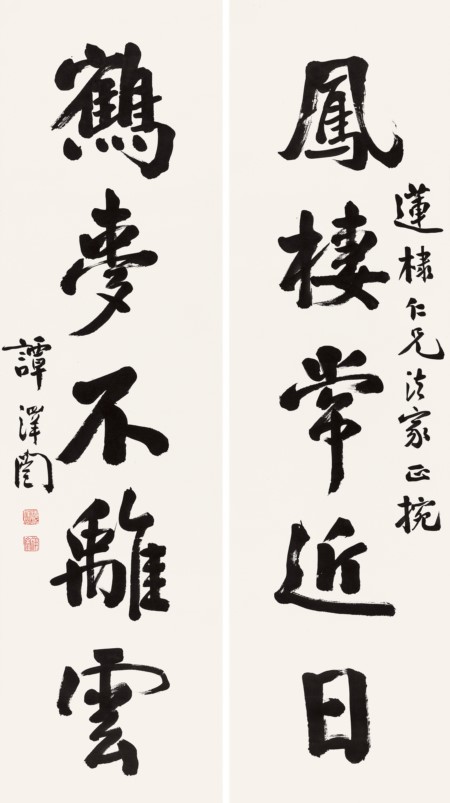 鳳棲常近日
蓮棣仁兄法家正捥
鶴夢不離雲
譚澤闓